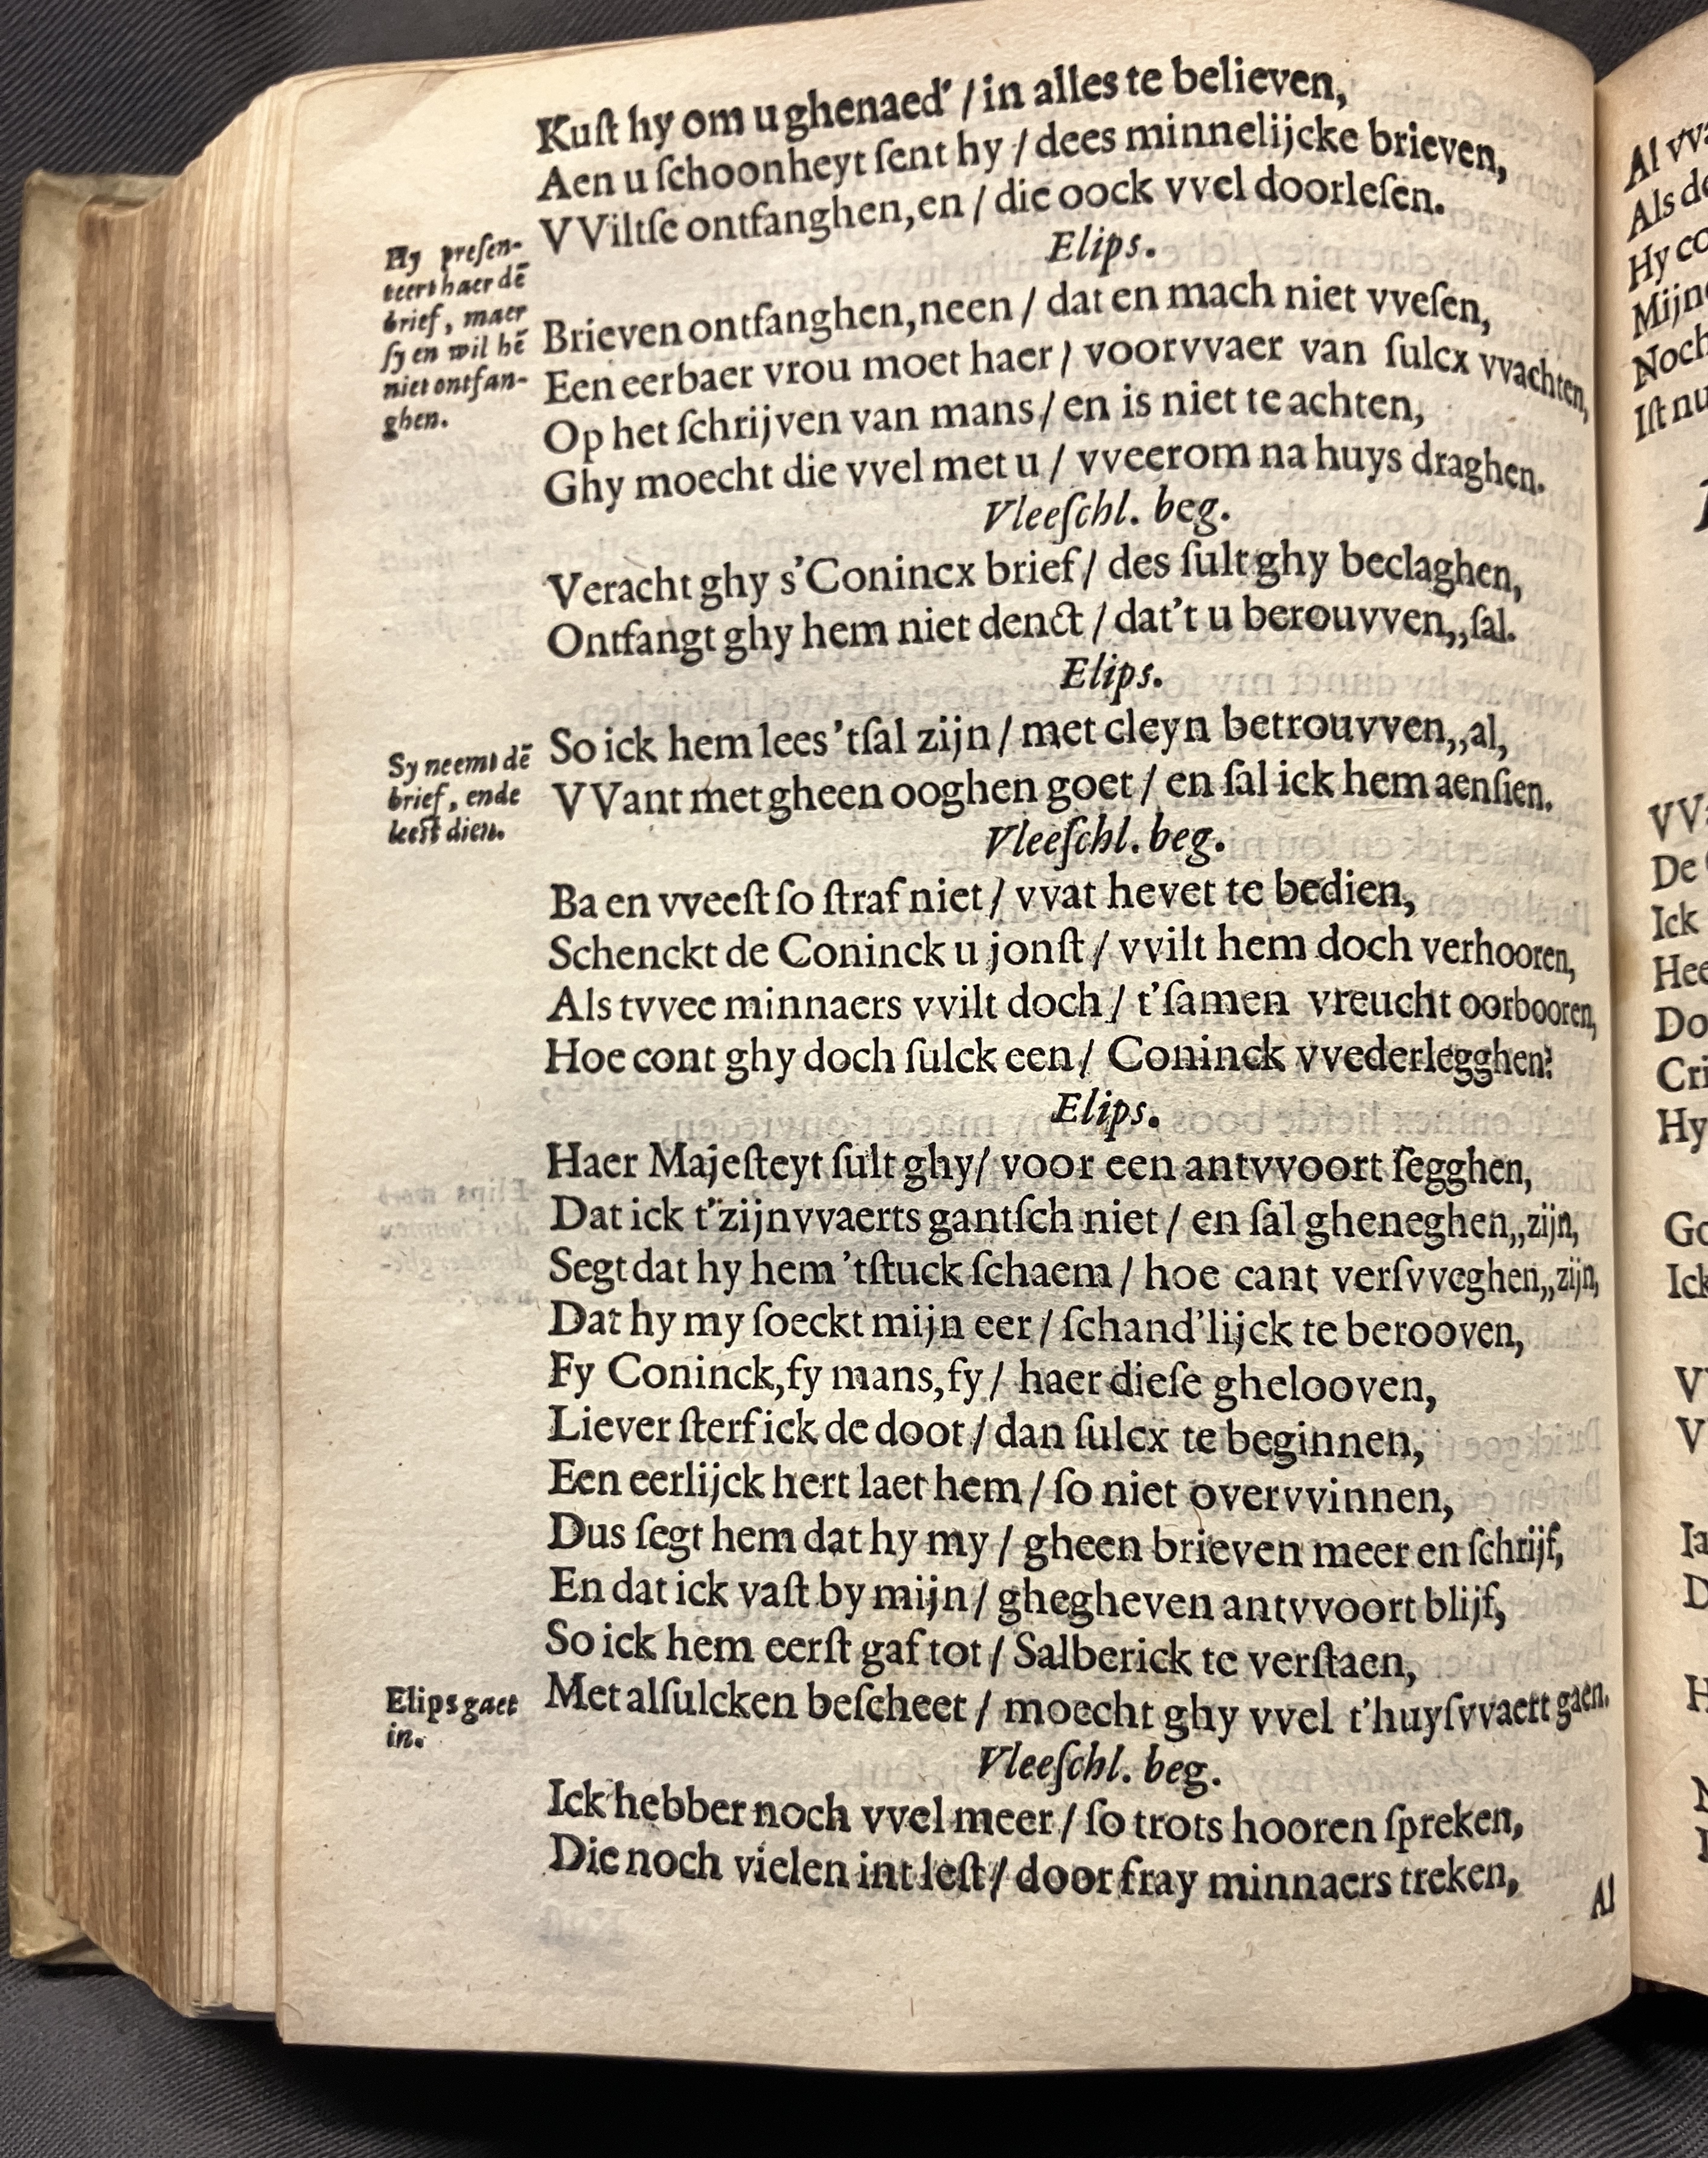 Kuſt hy om u ghenaed' / in alles te believen,
Aen u ſchoonheyt ſent hy / dees minnelijcke brieven,
VViltſe ontfanghen, en / die oock vvel doorleſen.
Elips.
Hy preſen-
teert haer dē
brief, maer
ſy en wil hē
niet ontfan-
ghen.
Brieven ontfanghen, neen / dat en mach niet vveſen,
Een eerbaer vrou moet haer / voorvvaer van ſulcx vvachten,
Op het ſchrijven van mans / en is niet te achten,
Ghy moecht die vvel met u / vveerom na huys draghen.
Vleeſchl. beg.
Veracht ghy s'Conincx brief / des ſult ghy beclaghen,
Ontfangt ghy hem niet denct / dat't u berouvven,,ſal.
Elips.
Sy neemt dē
brief, ende
leeſt dien.
So ick hem lees 'tſal zijn / met cleyn betrouvven,,al,
VVant met gheen ooghen goet / en ſal ick hem aenſien.
Vleeſchl. beg.
Ba en vveeſt ſo ſtraf niet / vvat hevet te bedien,
Schenckt de Coninck u jonſt / vvilt hem doch verhooren,
Als tvvee minnaers vvilt doch / t'ſamen vreucht oorbooren,
Hoe cont ghy doch ſulck een / Coninck vvederlegghen?
Elips.
Haer Majeſteyt ſult ghy / voor een antvvoort ſegghen,
Dat ick t'zijnvvaerts gantſch niet / en ſal gheneghen,,zijn,
Segt dat hy hem 'tſtuck ſchaem / hoe cant verſvveghen,,zijn,
Dat hy my ſoeckt mijn eer / ſchand'lijck te berooven,
Fy Coninck, fy mans, fy / haer dieſe ghelooven,
Liever ſterf ick de doot / dan ſulcx te beginnen,
Een eerlijck hert laet hem / ſo niet overvvinnen,
Dus ſegt hem dat hy my / gheen brieven meer en ſchrijf,
En dat ick vaſt by mijn / ghegheven antvvoort blijf,
So ick hem eerſt gaf tot / Salberick te verſtaen,
Elips gaet
in.
Met alſulcken beſcheet / moecht ghy vvel t'huyſvvaert gaen.
Vleeſchl. beg.
Ick hebber noch vvel meer / ſo trots hooren ſpreken,
Die noch vielen int leſt / door fray minnaers treken,
Al
Al
Als
Hy
Noch
Iſt nu
De
Ick
Hy
Ick